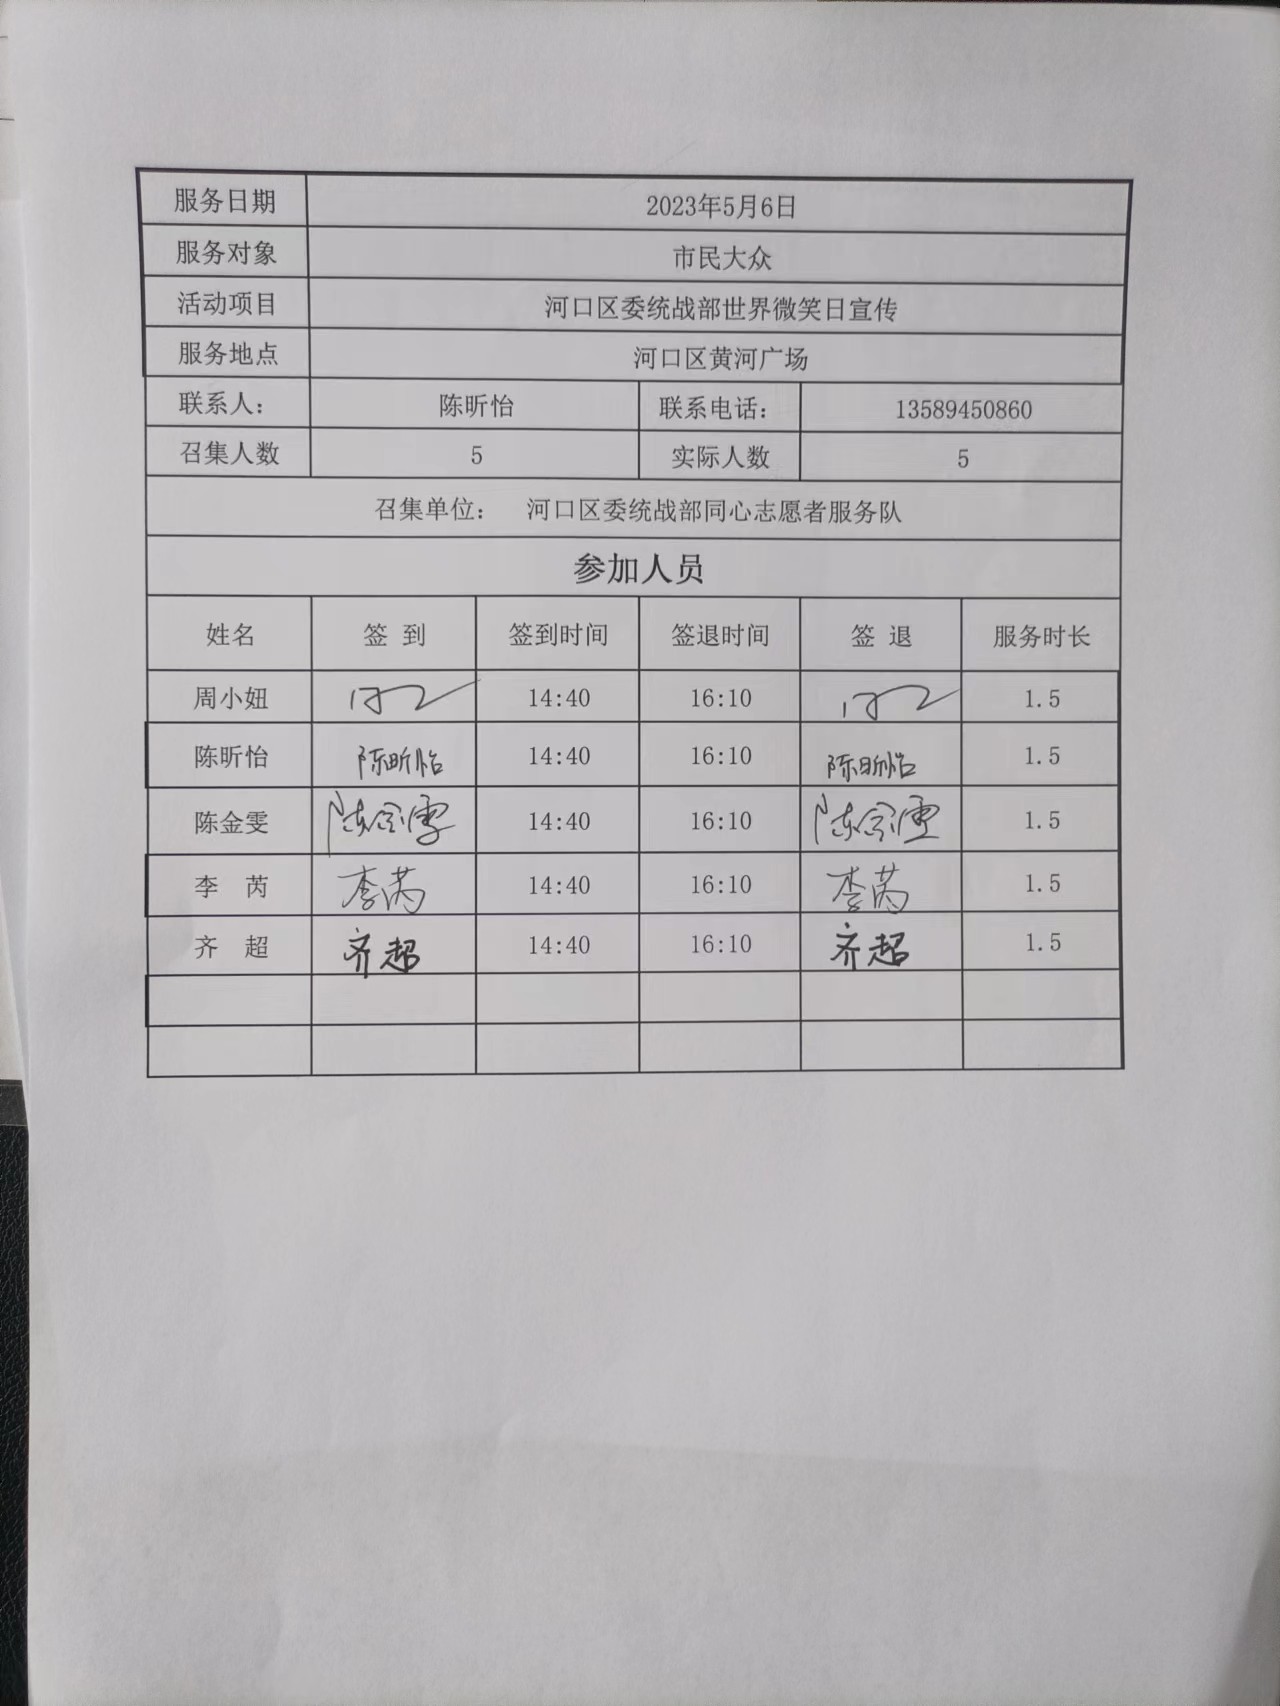 服务日期 2023年5月6日
服务对象 市民大众
活动项目 河口区委统战部世界微笑日宣传
服务地点 河口区黄河广场
联系人： 陈昕怡 联系电话： 13589450860
召集人数 5 实际人数 5
召集单位： 河口区委统战部同心志愿者服务队
参加人员
姓名 签 到 签到时间 签退时间 签 退 服务时长
周小妞 14:40 16:10 1.5
陈昕怡 陈昕怡 14:40 16:10 陈昕怡 1.5
陈金雯 陈金雯 14:40 16:10 陈金雯 1.5
李 芮 李芮 14:40 16:10 李芮 1.5
齐 超 齐超 14:40 16:10 齐超 1.5